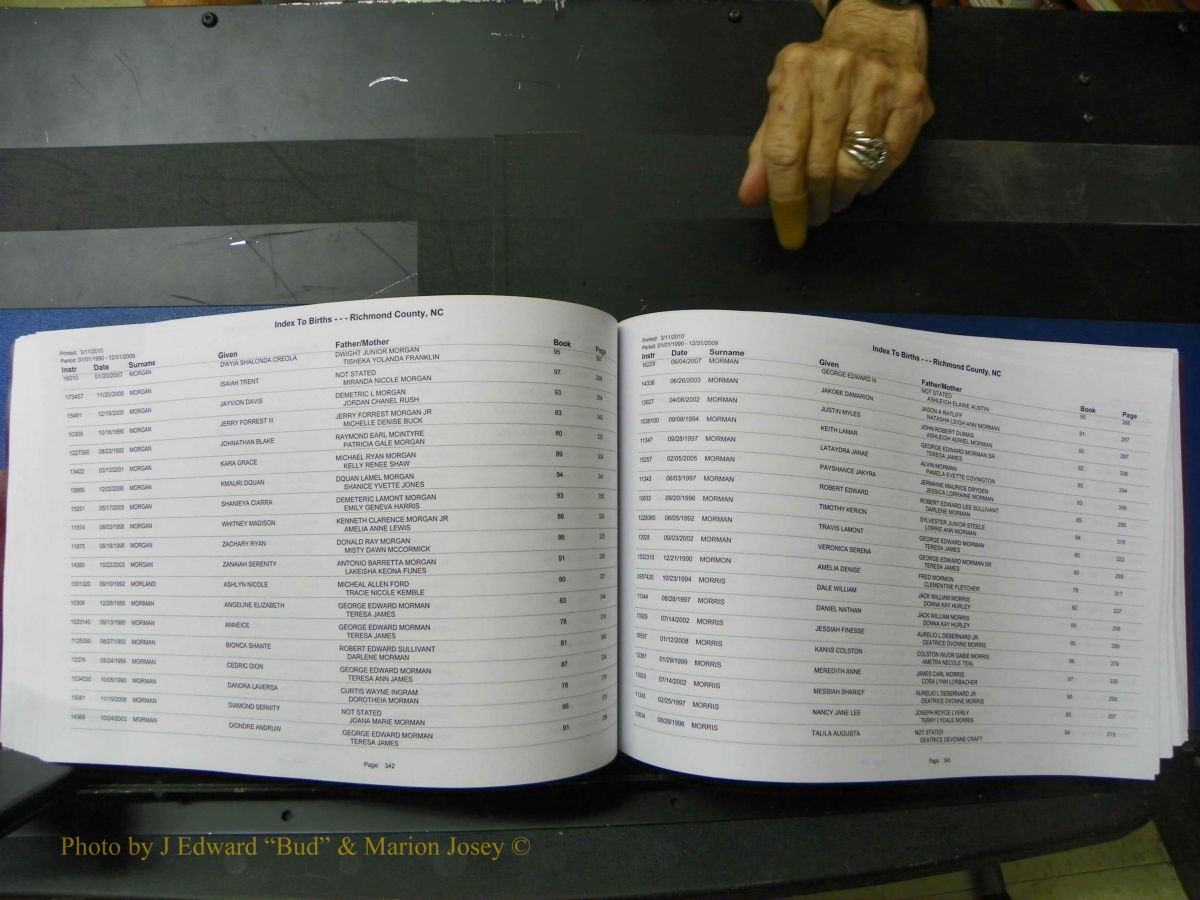 Index To Births - - - Richmond County, NC
Printed: 3/11/2010
Period: 01/01/1990 - 12/31/2009
Instr Date Surname Given Father/Mother Book Page
16010 01/20/2007 MORGAN DWYIA SHALONDA CREOLA DWIGHT JUNIOR MORGAN 95
TISHEKA YOLANDA FRANKLIN
173457 11/20/2009 MORGAN ISAIAH TRENT NOT STATED 97
MIRANDA NICOLE MORGAN
15491 12/19/2005 MORGAN JAYVION DAVIS DEMETRIC L MORGAN 93
JORDAN CHANEL RUSH
10309 10/16/1995 MORGAN JERRY FORREST III JERRY FORREST MORGAN JR 83
MICHELLE DENISE BUCK
1227390 06/23/1992 MORGAN JOHNATHAN BLAKE RAYMOND EARL MCINTYRE 80
PATRICIA GALE MORGAN
13422 03/13/2001 MORGAN KARA GRACE MICHAEL RYAN MORGAN 89
KELLY RENEE SHAW
15886 12/02/2006 MORGAN KMAURI DQUAN DQUAN LAMEL MORGAN 94
SHANICE YVETTE JONES
15251 05/17/2005 MORGAN SHANIEYA CIARRA DEMETERIC LAMONT MORGAN 93
EMILY GENEVA HARRIS
11874 08/03/1998 MORGAN WHITNEY MADISON KENNETH CLARENCE MORGAN JR 86
AMELIA ANNE LEWIS
11875 08/18/1998 MORGAN ZACHARY RYAN DONALD RAY MORGAN 86
MISTY DAWN MCCORMICK
14380 10/22/2003 MORGAN ZANAIAH SERENITY ANTONIO BARRETTA MORGAN 91
LAKEISHA KEONA FUNES
1301320 09/10/1992 MORLAND ASHLYN NICOLE MICHEAL ALLEN FORD 80
TRACIE NICOLE KEMBLE
10306 12/28/1995 MORMAN ANGELINE ELIZABETH GEORGE EDWARD MORMAN 83
TERESA JAMES
1533140 09/13/1990 MORMAN ANNEICE GEORGE EDWARD MORMAN 78
TERESA JAMES
1125390 08/27/1993 MORMAN BIONCA SHANTE ROBERT EDWARD SULLIVANT 81
DARLENE MORMAN
12376 05/24/1999 MORMAN CEDRIC DION GEORGE EDWARD MORMAN 87
TERESA ANN JAMES
1534530 10/05/1990 MORMAN DANDRA LAVERSA CURTIS WAYNE INGRAM 78
DOROTHEIA MORMAN
15061 11/19/2006 MORMAN DIAMOND SERNITY NOT STATED 95
JOANA MARIE MORMAN
14368 10/24/2003 MORMAN DIONDRE ANDRUW GEORGE EDWARD MORMAN 91
TERESA JAMES
Page: 342
Index To Births - - - Richmond County, NC
Printed: 3/11/2010
Period: 01/01/1990 - 12/31/2009
Instr Date Surname Given Father/Mother Book Page
16229 06/04/2007 MORMAN GEORGE EDWARD III NOT STATED 95 388
ASHLEIGH ELAINE AUSTIN
14336 06/26/2003 MORMAN JAKOBE DAMARION JASON A RATLIFF 91 287
NATASHA LEIGH ANN MORMAN
13927 04/08/2002 MORMAN JUSTIN MYLES JOHN ROBERT DUMAS 90 287
ASHLEIGH ADRIEL MORMAN
1038100 09/08/1994 MORMAN KEITH LAMAR GEORGE EDWARD MORMAN SR 82 336
TERESA JAMES
11347 09/28/1997 MORMAN LATAYDRA JANAE ALVIN MORMAN
PAMELA EVETTE COVINGTON
15257 02/05/2005 MORMAN PAYSHANCE JAKYRA JERMAINE MAURICE DRYDEN 93
JESSICA LORRAINE MORMAN
11343 06/03/1997 MORMAN ROBERT EDWARD ROBERT EDWARD LEE SULLIVANT 85 295
DARLENE MORMAN
10833 09/20/1996 MORMAN TIMOTHY KERION SYLVESTER JUNIOR STEELE 84 318
LORRIE ANN MORMAN
1228380 08/05/1992 MORMAN TRAVIS LAMONT GEORGE EDWARD MORMAN 80 322
TERESA JAMES
13928 09/03/2002 MORMAN VERONICA SERENA GEORGE EDWARD MORMAN SR 90 288
TERESA JAMES
1532310 12/21/1990 MORMON AMELIA DENISE FRED MORMON 78 317
CLEMENTINE FLETCHER
0957420 10/23/1994 MORRIS DALE WILLIAM JACK WILLIAM MORRIS 82 337
DONNA KAY HURLEY
11344 08/28/1997 MORRIS DANIEL NATHAN JACK WILLIAM MORRIS 85 296
DONNA KAY HURLEY
13929 07/14/2002 MORRIS JESSIAH FINESSE AURELIO L DEBERNARD JR 90 289
DEATRICE DVONNE MORRIS
16557 01/12/2008 MORRIS KANIIS COLSTON COLSTON WIJOR GABIE MORRIS 96 379
AMETRA NICOLE TEAL
12387 01/29/1999 MORRIS MEREDITH ANNE JAMES CARL MORRIS 87 335
CORA LYNN LORBACHER
13929 07/14/2002 MORRIS MESSIAH SHARIEF AURELIO L DEBERNARD JR 90 290
DEATRICE DVONNE MORRIS
11345 02/25/1997 MORRIS NANCY JANE LEE JOSEPH ROYCE LYERLY 85 297
TERRY LYDALE MORRIS
10834 08/28/1996 MORRIS TALILA AUGUSTA NOT STATED 84 319
DEATRICE DEVONNE CRAFT
Page: 343
Photo by J Edward “Bud” & Marion Josey ©